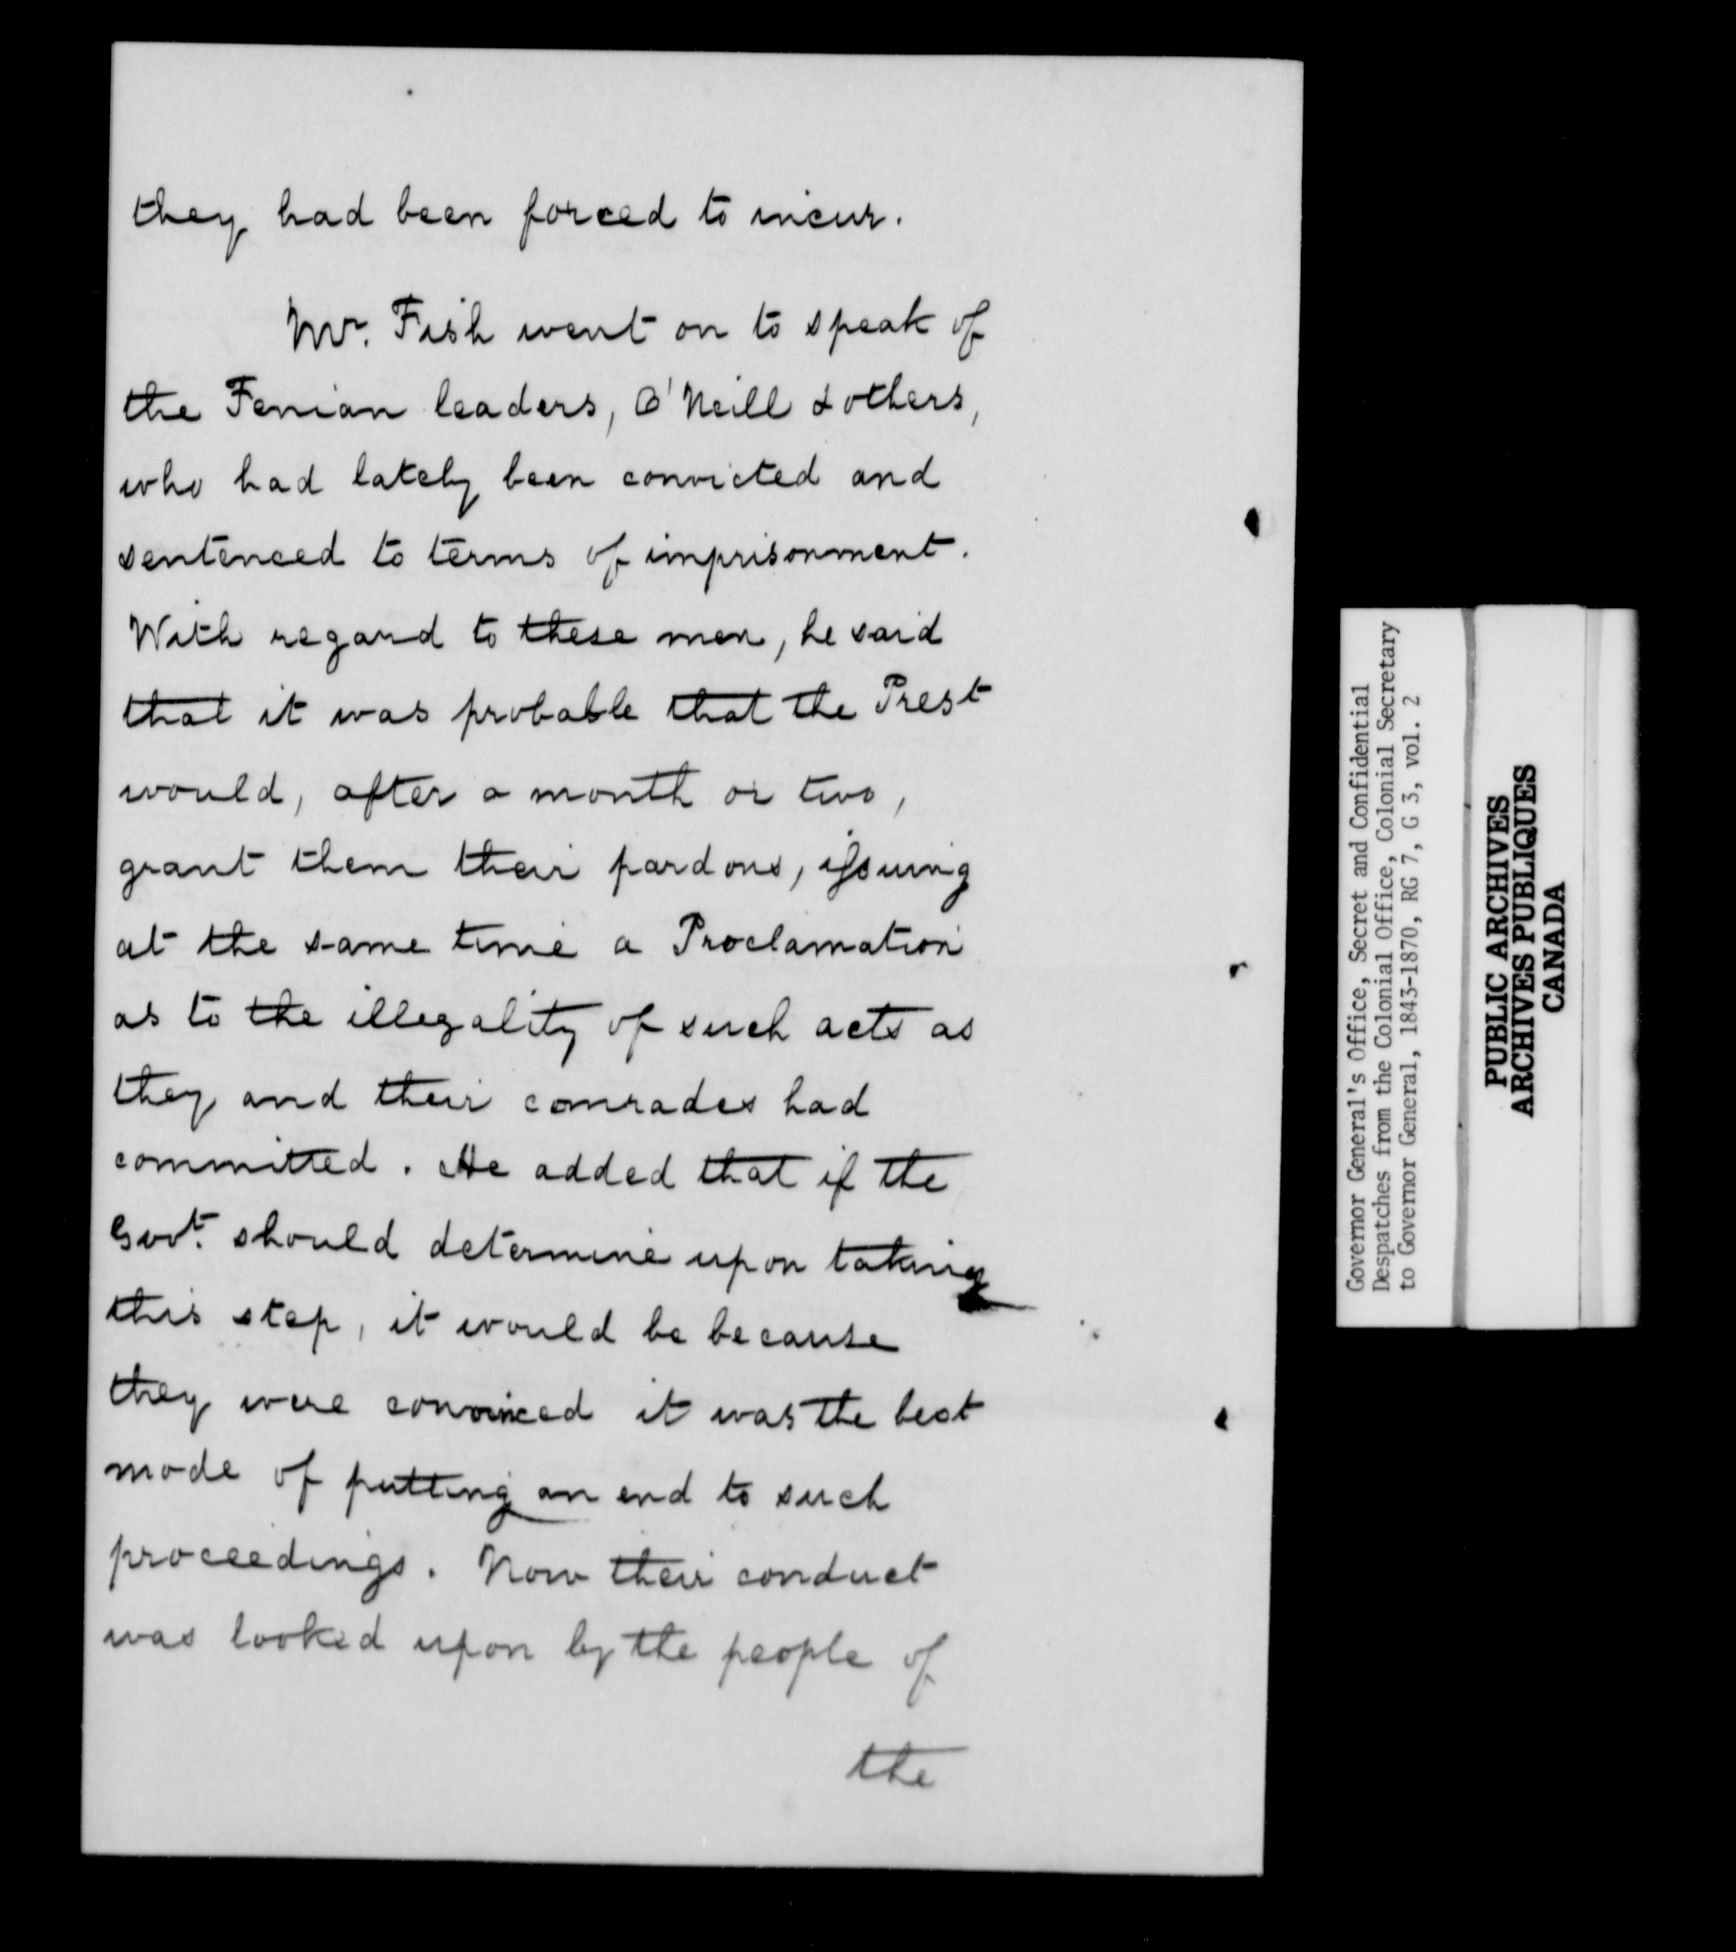 they had been forced to incur.
Mr. Fish went on to speak of
the Fenian leaders, O'Neill & others,
who had lately been convicted and
sentenced to terms of imprisonment.
With regard to these men, he said
that it was probable that the Prest
would, after a month or two,
grant them their pardons, issuing
at the same time a Proclamation
as to the illegality of such acts as
they and their comrades had
committed. He added that if the
Govt. should determine upon taking
this step, it would be because
they were convinced it was the best
mode of putting an end to such
proceedings. Now their conduct
was looked upon by the people of
the
Governor General's Office, Secret and Confidential
Despatches from the Colonial Office, Colonial Secretary
to Governor General, 1843-1870, RG 7, G 3, vol. 2
PUBLIC ARCHIVES
ARCHIVES PUBLIQUES
CANADA